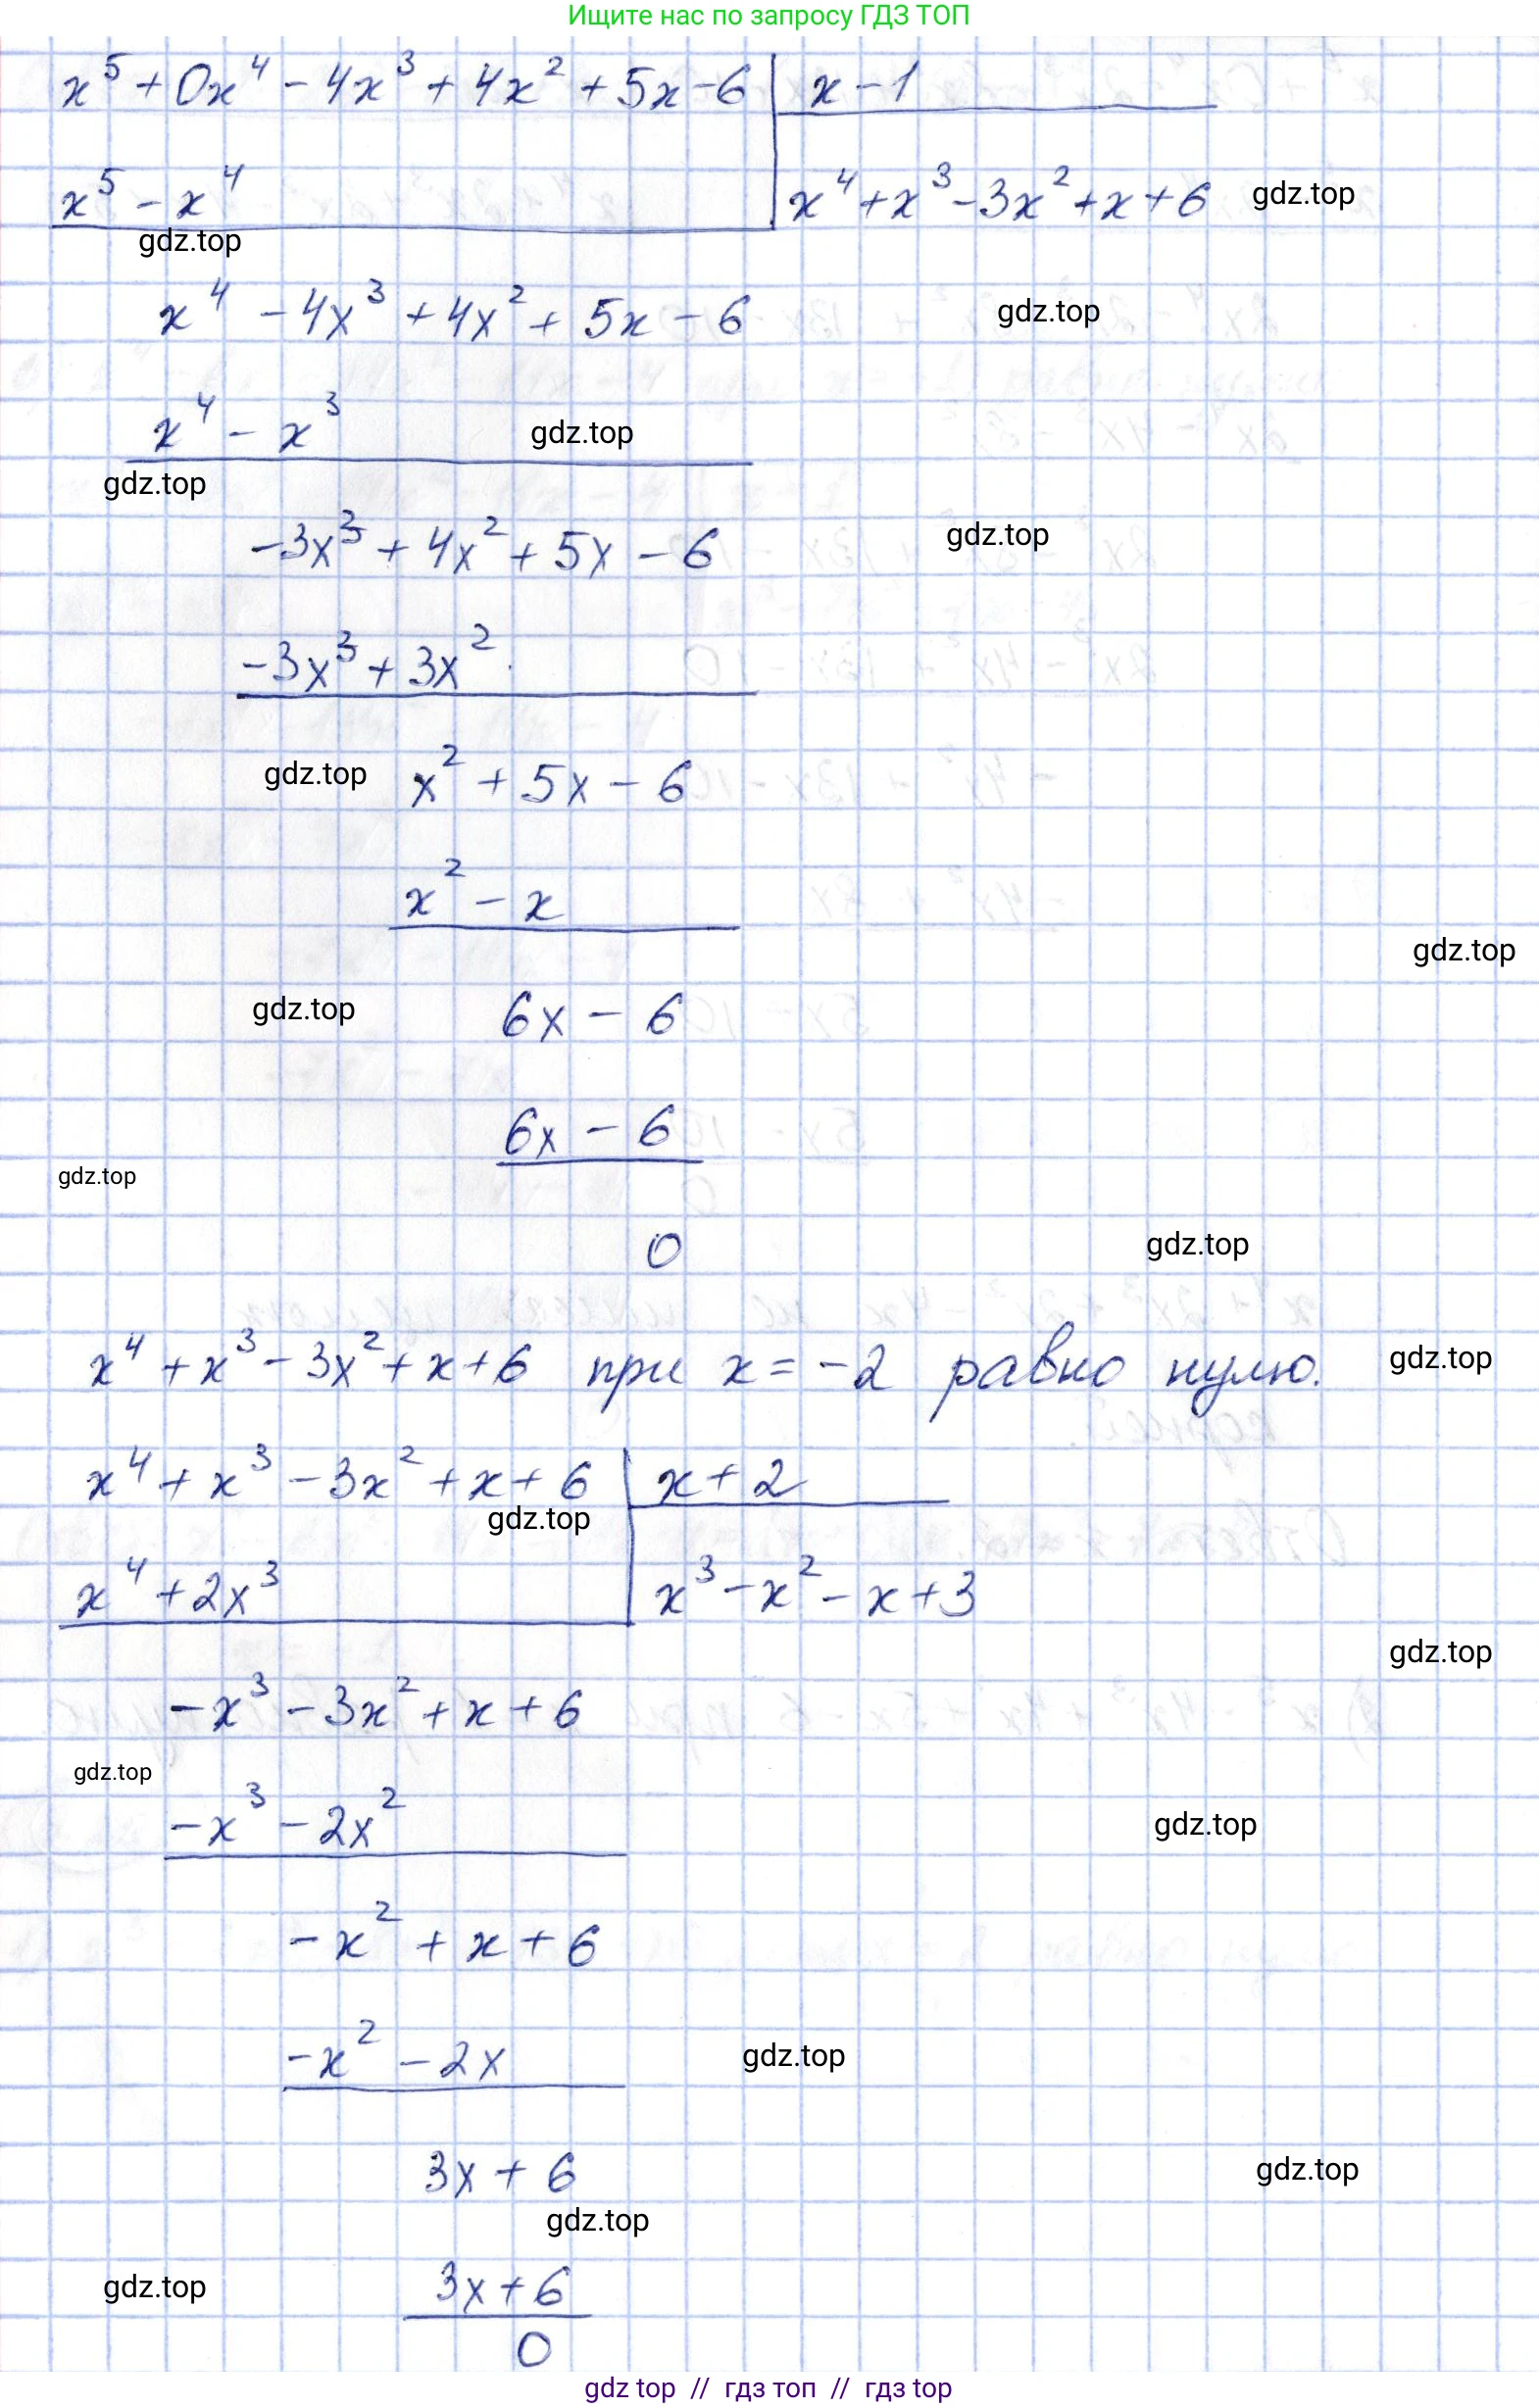 Ищите нас по запросу ГДЗ ТОП
x⁵ + 0x⁴ - 4x³ + 4x² + 5x - 6 | x - 1
x⁵ - x⁴ | x⁴ + x³ - 3x² + x + 6 gdz.top
gdz.top
x⁴ - 4x³ + 4x² + 5x - 6 gdz.top
x⁴ - x³ gdz.top
gdz.top
-3x³ + 4x² + 5x - 6 gdz.top
-3x³ + 3x²
gdz.top x² + 5x - 6
x² - x
gdz.top
gdz.top 6x - 6
6x - 6
gdz.top
0 gdz.top
x⁴ + x³ - 3x² + x + 6 при x = -2 равно нулю. gdz.top
x⁴ + x³ - 3x² + x + 6 | x + 2
gdz.top
x⁴ + 2x³ | x³ - x² - x + 3
gdz.top
-x³ - 3x² + x + 6
gdz.top
-x³ - 2x² gdz.top
-x² + x + 6
-x² - 2x gdz.top
3x + 6 gdz.top
gdz.top
gdz.top 3x + 6
0
gdz top // гдз топ // гдз top